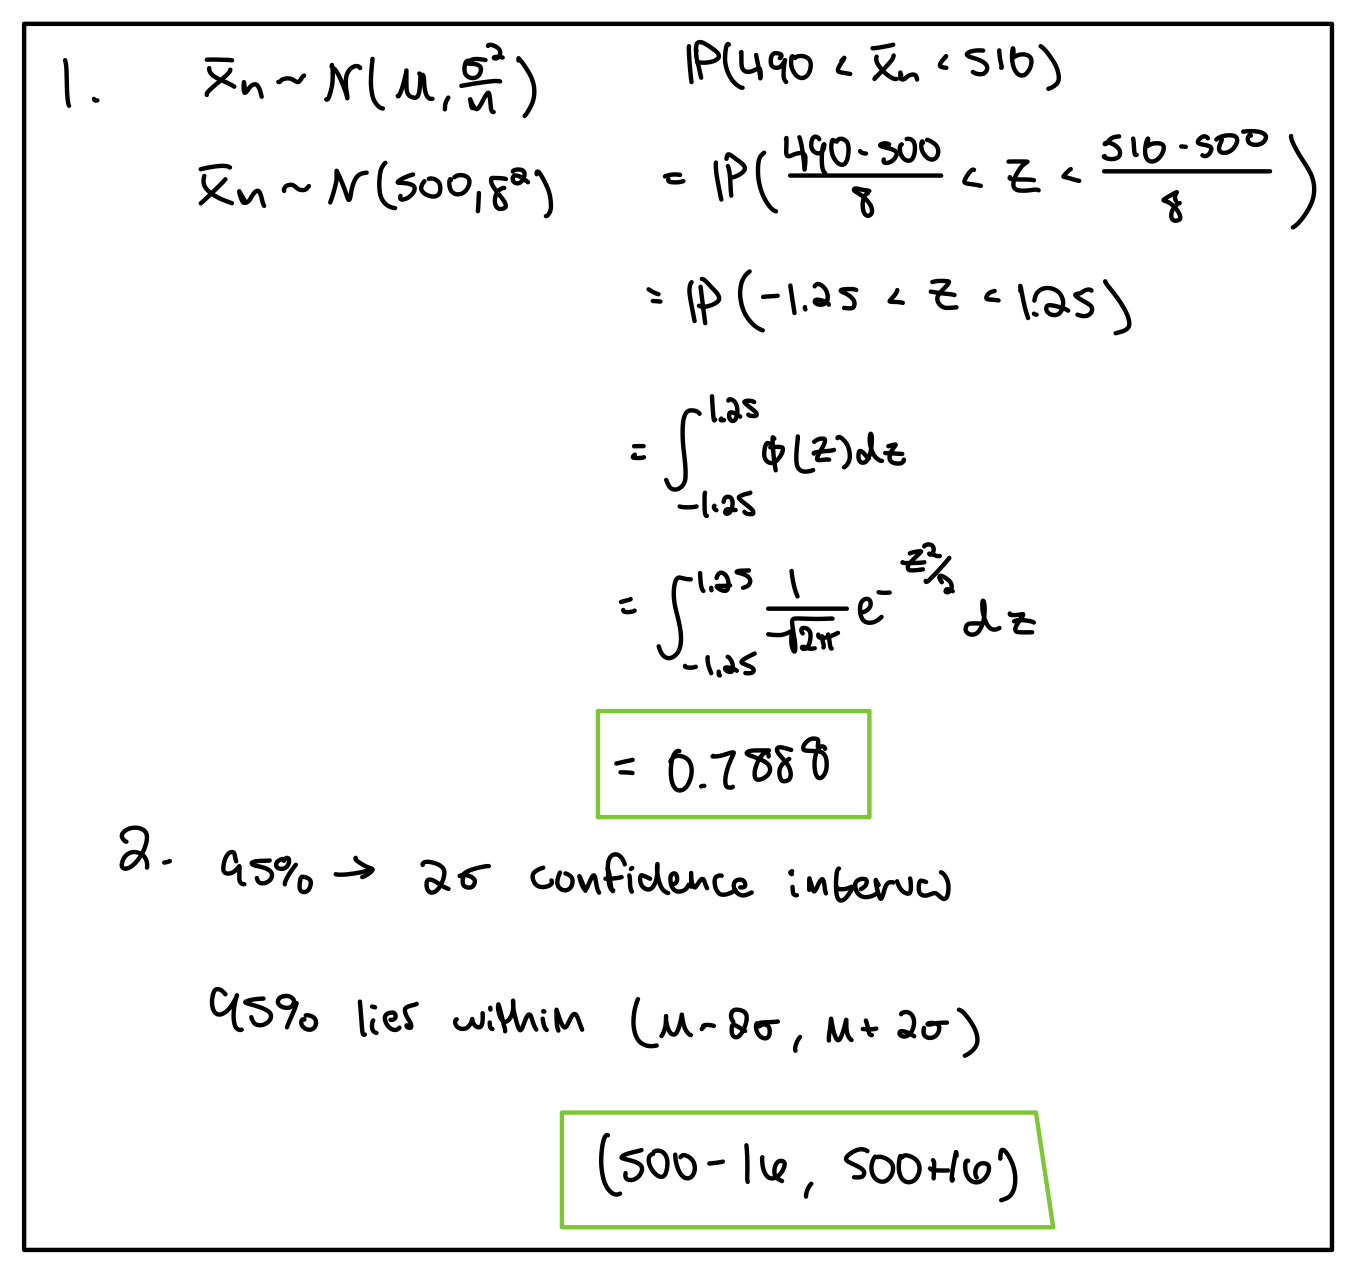 1. X̄n ~ N(μ, σ²/n)
X̄n ~ N(500, 8²)
ℙ(490 < X̄n < 510)
= ℙ((490 - 500)/8 < Z < (510 - 500)/8)
= ℙ(-1.25 < Z < 1.25)
= ∫_{-1.25}^{1.25} ϕ(z)dz
= ∫_{-1.25}^{1.25} 1/√(2π) e^{-z²/2} dz
= 0.7888
2. 95% → 2σ confidence interval
95% lies within (μ - 2σ, μ + 2σ)
(500 - 16, 500 + 16)